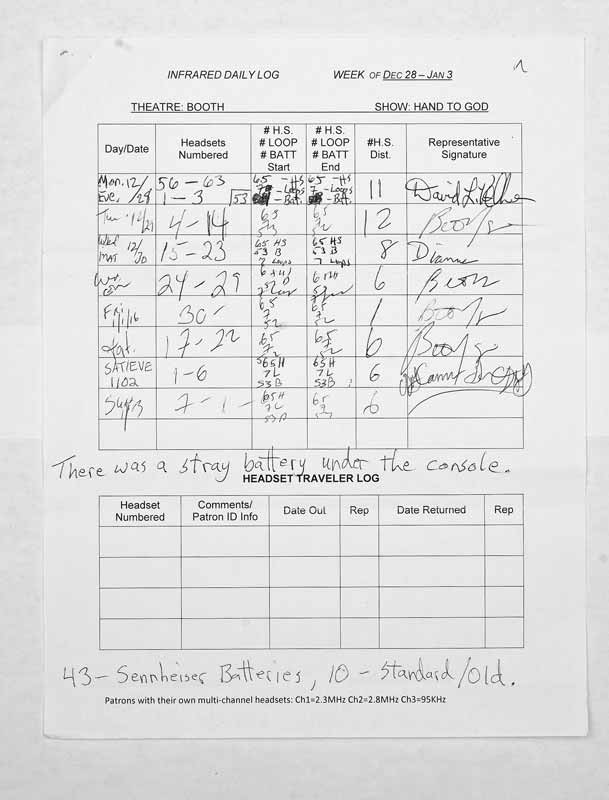 INFRARED DAILY LOG WEEK OF DEC 28 – JAN 3
THEATRE: BOOTH SHOW: HAND TO GOD
Day/Date Headsets Numbered # H.S. # LOOP # BATT Start # H.S. # LOOP # BATT End #H.S. Dist. Representative Signature
Mon. 12/28 Eve. 56 – 63 1 – 3 53 65 -HS 7 -Loops -Bat. 65 -HS 7 -Loops -Bat. 11 David L.
Tue 12/29 4 – 14 65 52 65 52 12
Wed 12/30 mat 15 – 23 65 HS 53 B 7 Loops 65 HS 53 B 7 Loops 8 Dianne
24 – 29 6
Fri 1/1/16 30 - 65 7 52 65 7 52 1
Sat. 17 – 22 65 7 52 65 7 52 6
SAT/EVE 1/02 1 – 6 65H 7L 53B 65H 7L 53B 6
7 - 1 - 65H 7L 53B 65 6
There was a stray battery under the console.
HEADSET TRAVELER LOG
Headset Numbered Comments/ Patron ID Info Date Out Rep Date Returned Rep
43 – Sennheiser Batteries, 10 – Standard/Old.
Patrons with their own multi-channel headsets: Ch1=2.3MHz Ch2=2.8MHz Ch3=95KHz